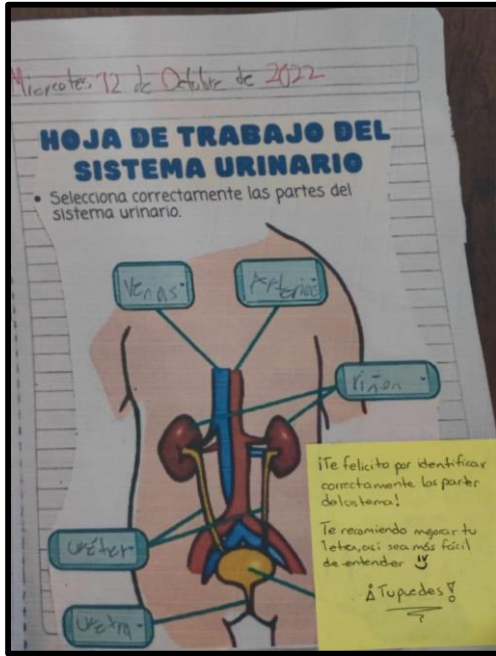 Miercoles 12 de Octubre de 2022
HOJA DE TRABAJO DEL
SISTEMA URINARIO
• Selecciona correctamente las partes del
sistema urinario.
Venas
Arterias
riñon
uréter
uretra
¡Te felicito por identificar
correctamente las partes
del sistema!
Te recomiendo mejorar tu
letra, así sea más fácil
de entender
¡Tu puedes!